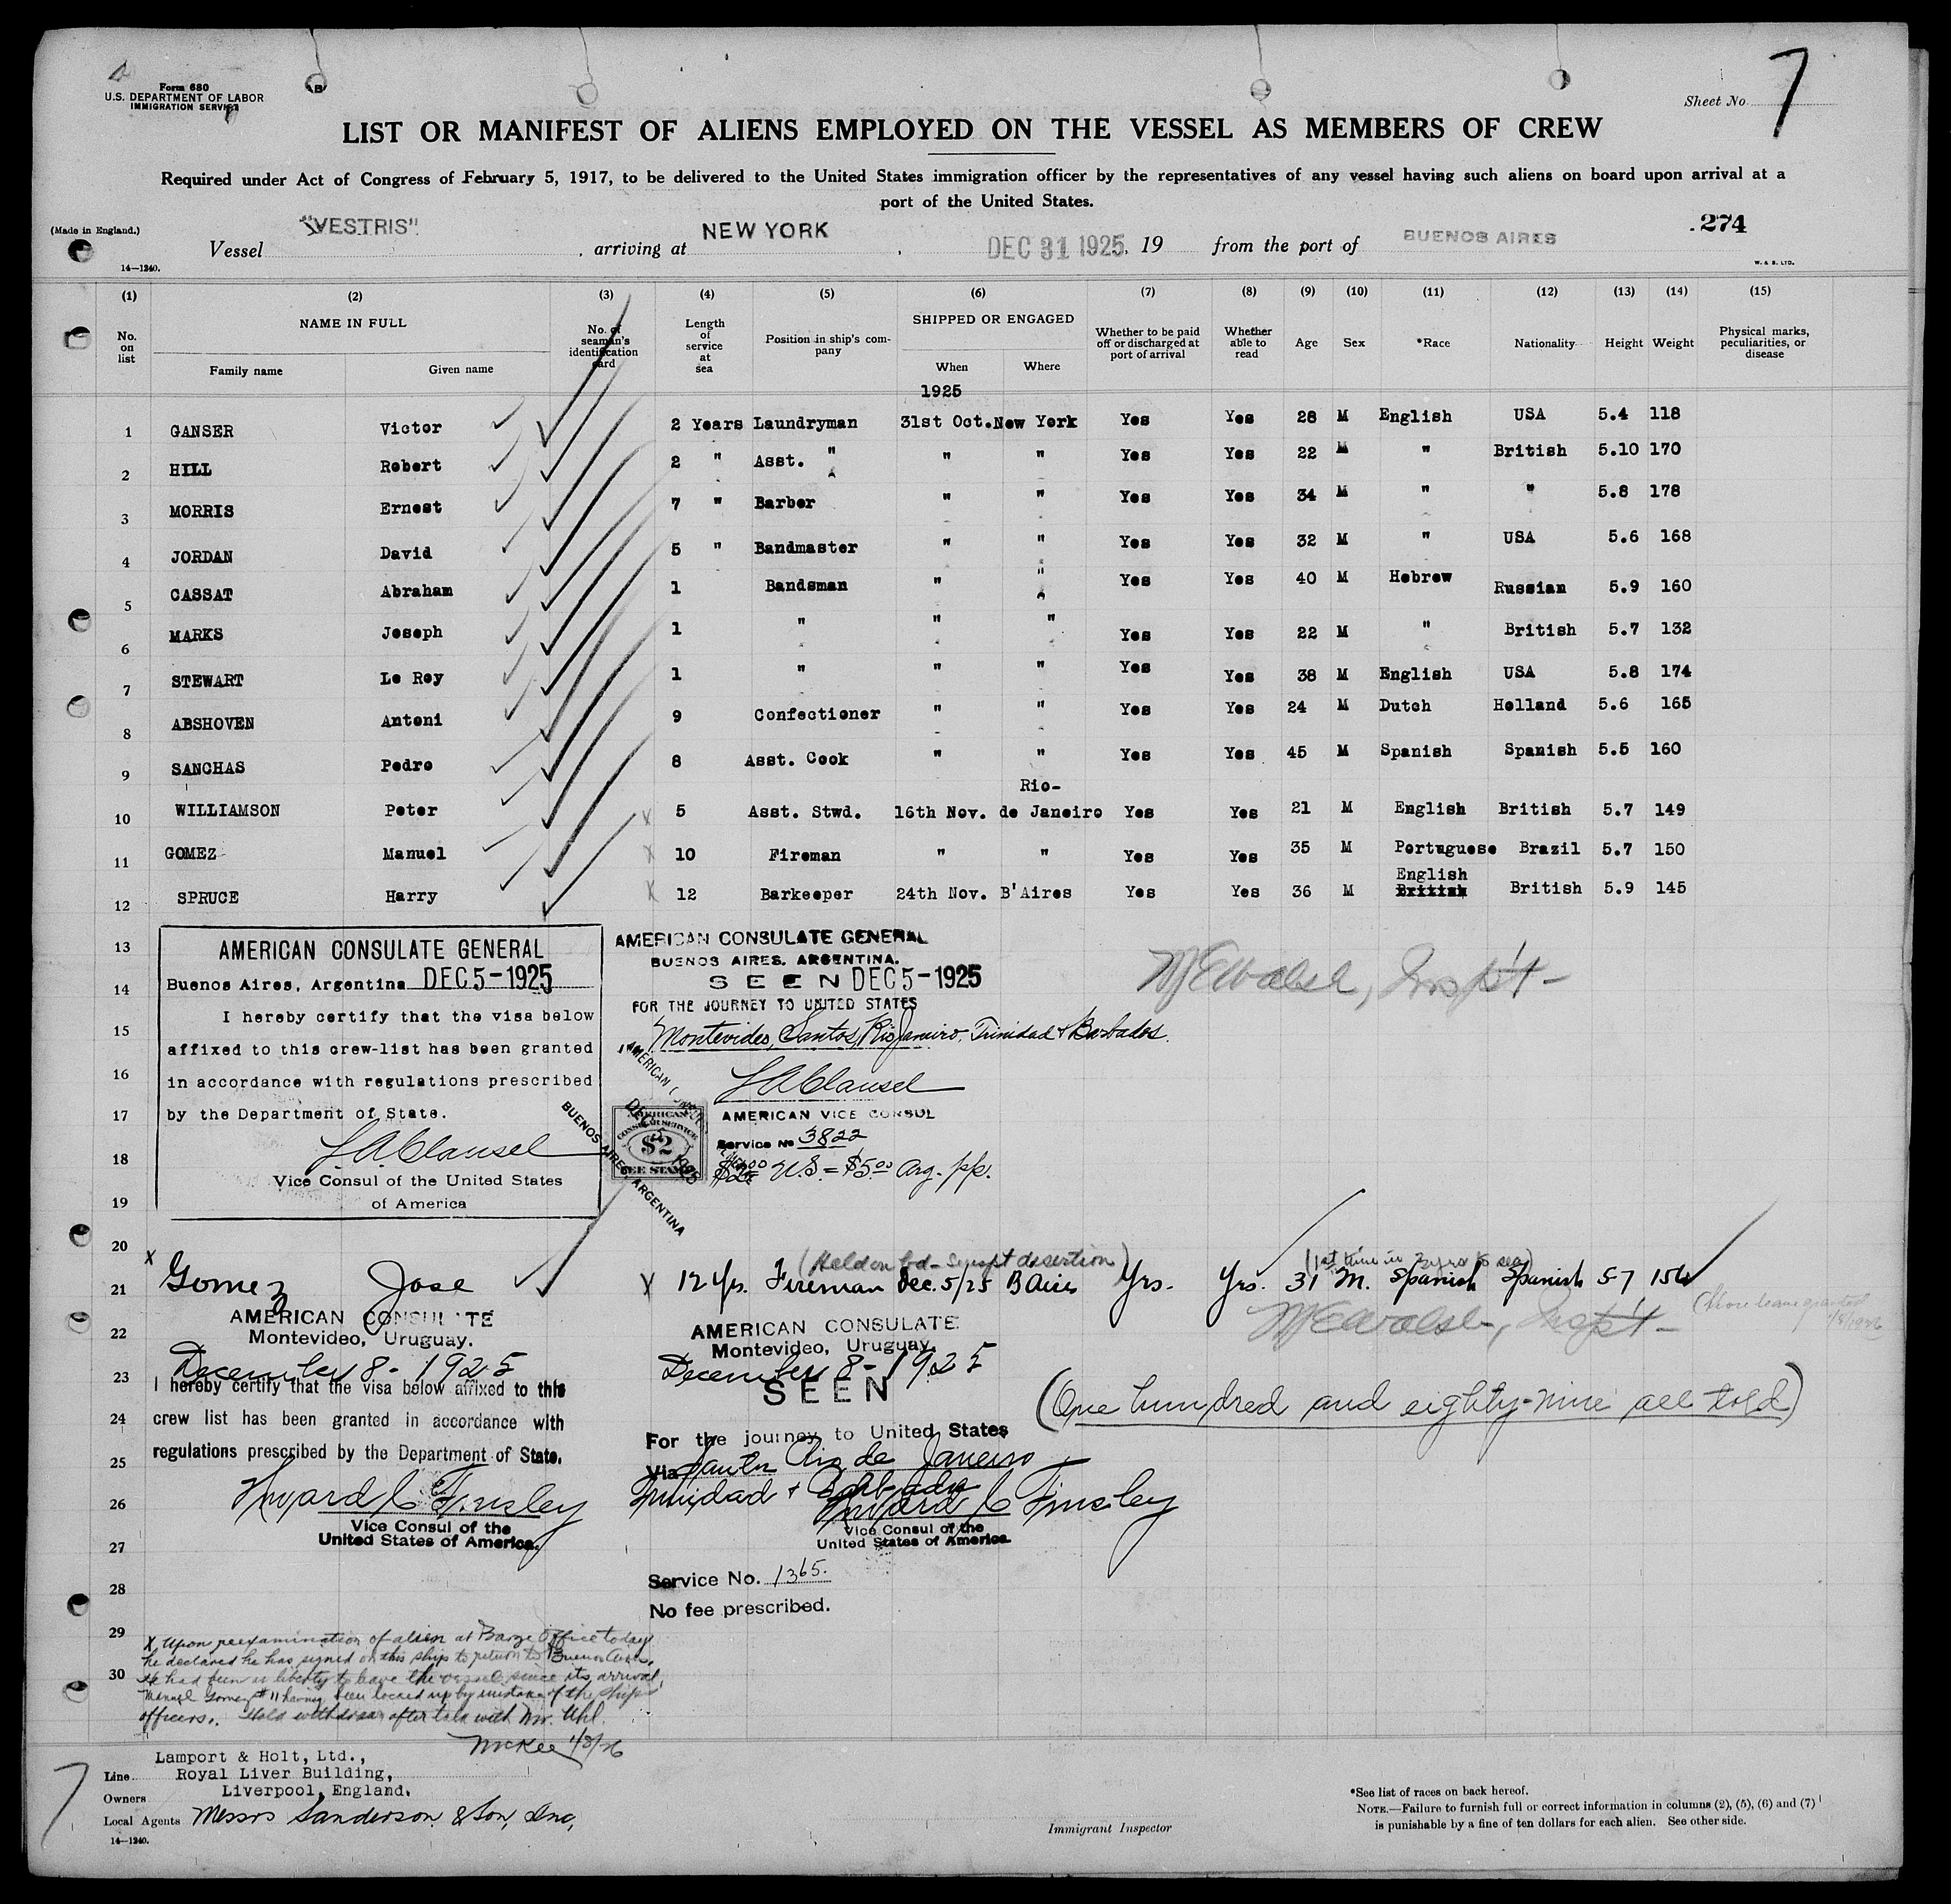 Form 680
U.S. DEPARTMENT OF LABOR
IMMIGRATION SERVICE
Sheet No. 7
LIST OR MANIFEST OF ALIENS EMPLOYED ON THE VESSEL AS MEMBERS OF CREW
Required under Act of Congress of February 5, 1917, to be delivered to the United States immigration officer by the representatives of any vessel having such aliens on board upon arrival at a
port of the United States.
(Made in England.)
.274
Vessel "VESTRIS", arriving at NEW YORK, DEC 31 1925, 19 from the port of BUENOS AIRES
14—1240.
W. & S. LTD.
(1) (2) (3) (4) (5) (6) (7) (8) (9) (10) (11) (12) (13) (14) (15)
No. on list
NAME IN FULL
Family name Given name
No. of seaman's identification card
Length of service at sea
Position in ship's company
SHIPPED OR ENGAGED
When Where
Whether to be paid off or discharged at port of arrival
Whether able to read
Age
Sex
*Race
Nationality
Height
Weight
Physical marks, peculiarities, or disease
1925
1 GANSER Victor 2 Years Laundryman 31st Oct. New York Yes Yes 28 M English USA 5.4 118
2 HILL Robert 2 " Asst. " " " Yes Yes 22 M " British 5.10 170
3 MORRIS Ernest 7 " Barber " " Yes Yes 34 M " " 5.8 178
4 JORDAN David 5 " Bandmaster " " Yes Yes 32 M " USA 5.6 168
5 CASSAT Abraham 1 Bandsman " " Yes Yes 40 M Hebrew Russian 5.9 160
6 MARKS Joseph 1 " " " Yes Yes 22 M " British 5.7 132
7 STEWART Le Roy 1 " " " Yes Yes 38 M English USA 5.8 174
8 ABSHOVEN Antoni 9 Confectioner " " Yes Yes 24 M Dutch Holland 5.6 165
9 SANCHAS Pedro 8 Asst. Cook " " Yes Yes 45 M Spanish Spanish 5.5 160
Rio-
10 WILLIAMSON Peter x 5 Asst. Stwd. 16th Nov. de Janeiro Yes Yes 21 M English British 5.7 149
11 GOMEZ Manuel x 10 Fireman " " Yes Yes 35 M Portuguese Brazil 5.7 150
English
12 SPRUCE Harry x 12 Barkeeper 24th Nov. B'Aires Yes Yes 36 M British British 5.9 145
13
14
15
16
17
18
19
AMERICAN CONSULATE GENERAL
Buenos Aires, Argentina DEC 5-1925
I hereby certify that the visa below
affixed to this crew-list has been granted
in accordance with regulations prescribed
by the Department of State.
Vice Consul of the United States
of America
AMERICAN CONSULATE GENERAL
BUENOS AIRES, ARGENTINA.
SEEN DEC 5-1925
FOR THE JOURNEY TO UNITED STATES
Montevideo, Santos, Rio Janeiro, Trinidad & Barbados.
AMERICAN VICE CONSUL
Service No 3822
U.S. = $5.00 Arg. pp.
AMERICAN
CONSULAR SERVICE
$2
FEE STAMP
BUENOS AIRES, ARGENTINA
20
(Held on bd - desertion)
21 x Gomez Jose x 12 Yrs. Fireman Dec. 5/25 B Aires Yrs. Yrs. 31 M. Spanish Spanish 5-7 154
22
23
24
25
26
27
28
29
30
AMERICAN CONSULATE
Montevideo, Uruguay.
December 8-1925
I hereby certify that the visa below affixed to this
crew list has been granted in accordance with
regulations prescribed by the Department of State.
Vice Consul of the
United States of America.
AMERICAN CONSULATE
Montevideo, Uruguay.
December 8-1925
SEEN
For the journey to United States
Via Santos Rio de Janeiro
Trinidad + Barbados
Vice Consul of the
United States of America.
Service No. 1365.
No fee prescribed.
(One hundred and eighty-nine all told)
X Upon reexamination of alien at Barge Office today
he declared he has signed on this ship to return to Buenos Aires.
He had been at liberty to leave the vessel since its arrival,
Manuel Gomez #11 having been locked up by mistake of the ship's
officers. Hold withdrawn after talk with Mr. Uhl.
McKee 1/8/26
7
Line Lamport & Holt, Ltd.,
Royal Liver Building,
Owners Liverpool, England.
Local Agents Messrs Sanderson & Son, Inc,
14—1240.
Immigrant Inspector
*See list of races on back hereof.
NOTE.—Failure to furnish full or correct information in columns (2), (5), (6) and (7)
is punishable by a fine of ten dollars for each alien. See other side.